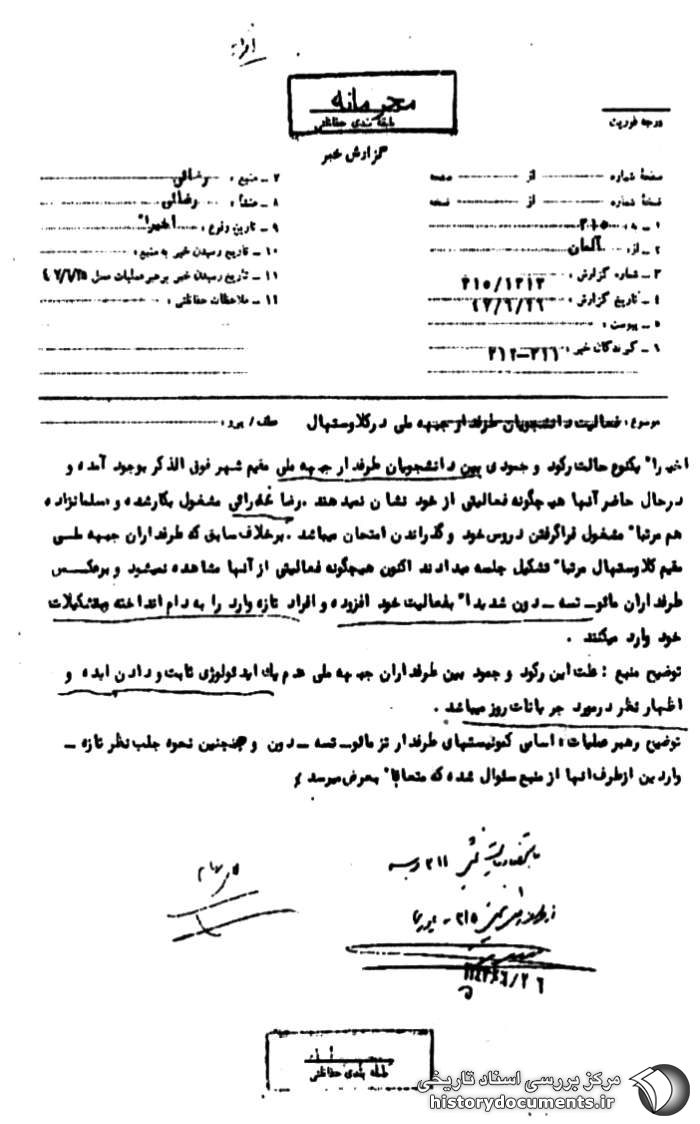 محرمانه
طبقه بندی حفاظتی
درجه فوریت
گزارش خبر
صفحه شماره از صفحه
نسخه شماره از نسخه
۱ ــ به : ۳۱۵
۲ ــ از : آلمان
۳ ــ شماره گزارش : ۳۱۵/۱۲۱۲
٤ ــ تاریخ گزارش : ٤۷/٦/۲٦
۵ ــ پیوست :
٦ ــ گیرندگان خبر : ۳۱۲-۳۱۱
۷ ــ منبع : رضائی
۸ ــ منشأ : رضائی
۹ ــ تاریخ وقوع : اخیرا"
۱۰ ــ تاریخ رسیدن خبر به منبع :
۱۱ ــ تاریخ رسیدن خبر برهبر عملیات محل
۱۱ ــ ملاحظات حفاظتی :
موضوع : فعالیت دانشجویان طرفدار جبهه ملی در کلاوستهال
عطف / پیرو :
اخیرا" یکنوع حالت رکود و جمودی بین دانشجویان طرفدار جبهه ملی مقیم شهر فوق الذکر بوجود آمده و
در حال حاضر آنها هیچگونه فعالیتی از خود نشان نمیدهند . رضا غفرائی مشغول بکار شده و سلمانزاده
هم مرتبا" مشغول فراگرفتن دروس خود و گذراندن امتحان میباشد . برخلاف سابق که طرفداران جبهه ملی
مقیم کلاوستهال مرتبا" تشکیل جلسه میدادند اکنون هیچگونه فعالیتی از آنها مشاهده نمیشود و برعکس
طرفداران مائو ــ تسه ــ دون شدیدا" بفعالیت خود افزوده و افراد تازه وارد را به دام انداخته وبتشکیلات
خود وارد میکنند .
توضیح منبع : علت این رکود و جمود بین طرفداران جبهه ملی عدم یك ایدئولوژی ثابت و دادن ایده و
اظهار نظر در مورد جریانات روز میباشد .
توضیح رهبر عملیات : اسامی کمونیستهای طرفدار تز مائو ــ تسه ــ دون و همچنین نحوه جلب نظر تازه ــ
واردین از طرف آنها از منبع سئوال شده که متعاقبا" بعرض میرسد .
طبقه بندی حفاظتی
مرکز بررسی اسناد تاریخی
historydocuments.ir